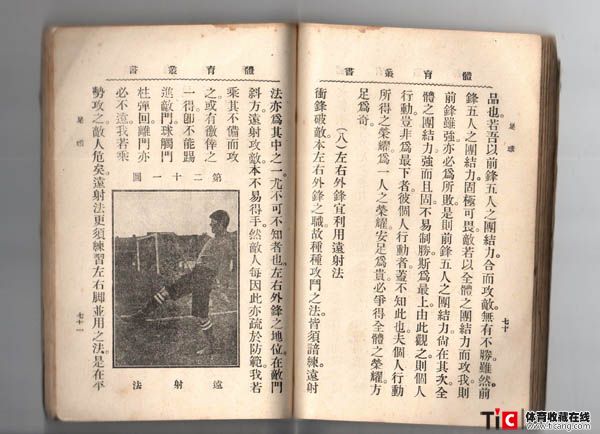 體育叢書
足球
七十
品也。若吾以前鋒五人之團結力合而攻敵。無有不勝。雖然。前
鋒五人之團結力固極可畏。敵若以全體之團結力而攻我。則
前鋒雖強。亦必爲所敗。是則前鋒五人之團結力。尙在其次。全
體之團結力強而且固。不易制勝。斯爲最上。由此觀之。則個人
行動。豈非爲最下者。彼個人行動者。蓋不知此也。夫個人行動
所得之榮耀。爲一人之榮耀。安足爲貴。必爭得全體之榮耀。方
足爲奇。
(八)左右外鋒宜利用遠射法
衝鋒破敵。本左右外鋒之職。故種種攻門之法。皆須諳練。遠射
體育叢書
法亦爲其中之一。尤不可不知者也。左右外鋒之地位。在敵門
斜方。遠射攻敵。本不易得手。然敵人每因此亦疏於防範。我若
乘其不備而攻
之。或有徼倖之
一得。卽不能踢
進敵門。球觸門
柱。彈回離門亦
必不遠。我若乘
勢攻之。敵人危矣。遠射法更須練習左右脚並用之法。是在平
第二十一圖
遠射法
足球
七十一
TiC 体育收藏在线
www.ticang.com